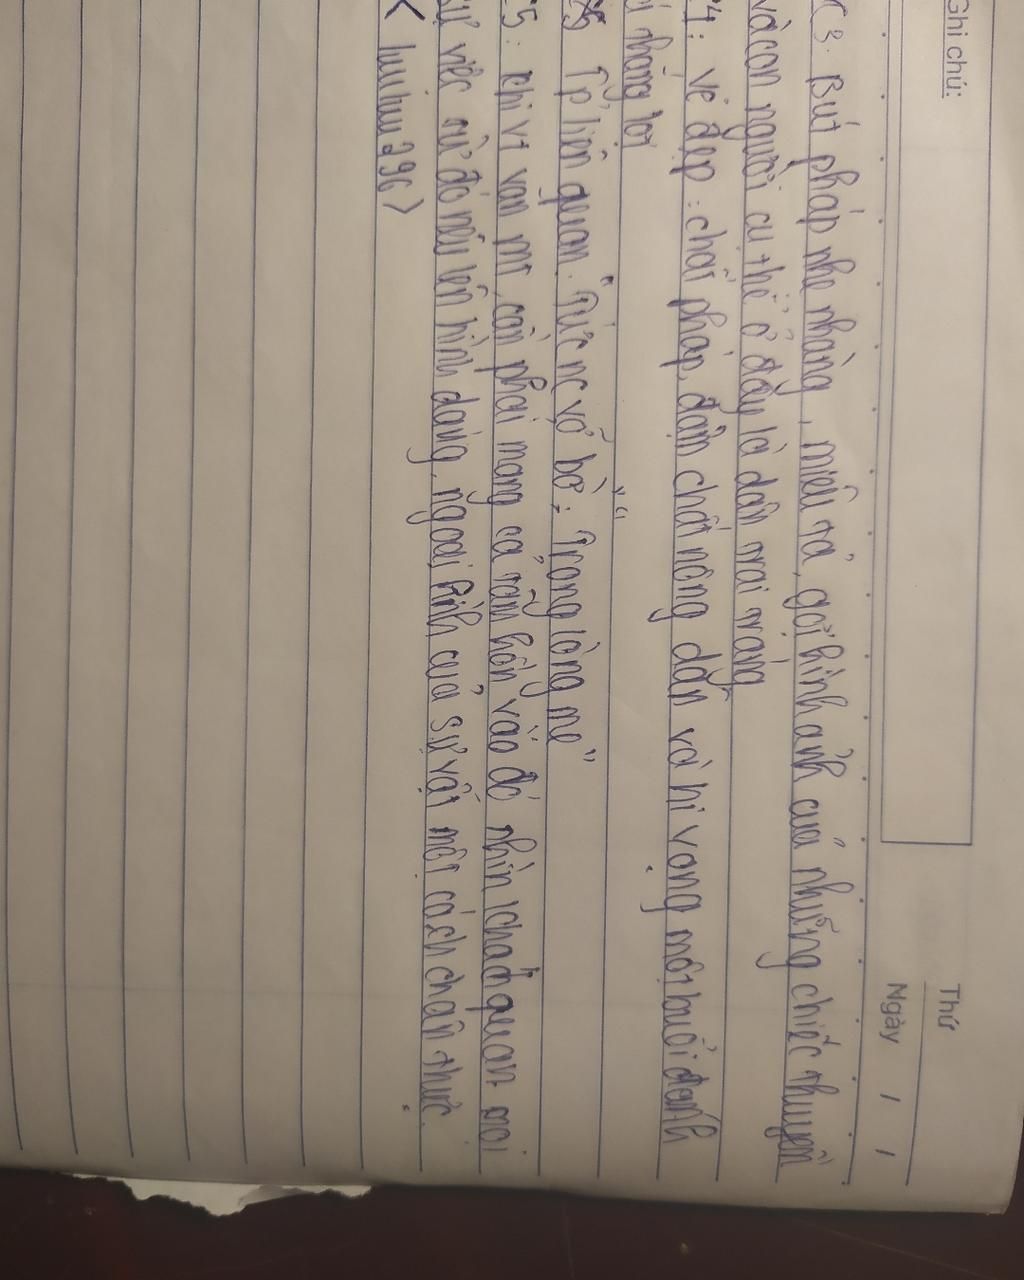 Ghi chú:
Thứ
Ngày / /
C3: Bút pháp nhẹ nhàng, miêu tả, gợi hình ảnh của những chiếc thuyền
và con người cụ thể ở đây là dân trai tráng
4: vẻ đẹp: chất phác, đậm chất nông dân và hi vọng một buổi đánh
thắng lợi
Tp liên quan: "Tức nc vỡ bờ; Trong lòng mẹ"
C5: khi vt văn mt, cần phải mang cả tâm hồn vào đó nhìn khách quan mọi
sự việc từ đó nêu lên hình dáng, ngoại hình của sự vật một cách chân thực.
< huuhuu296 >